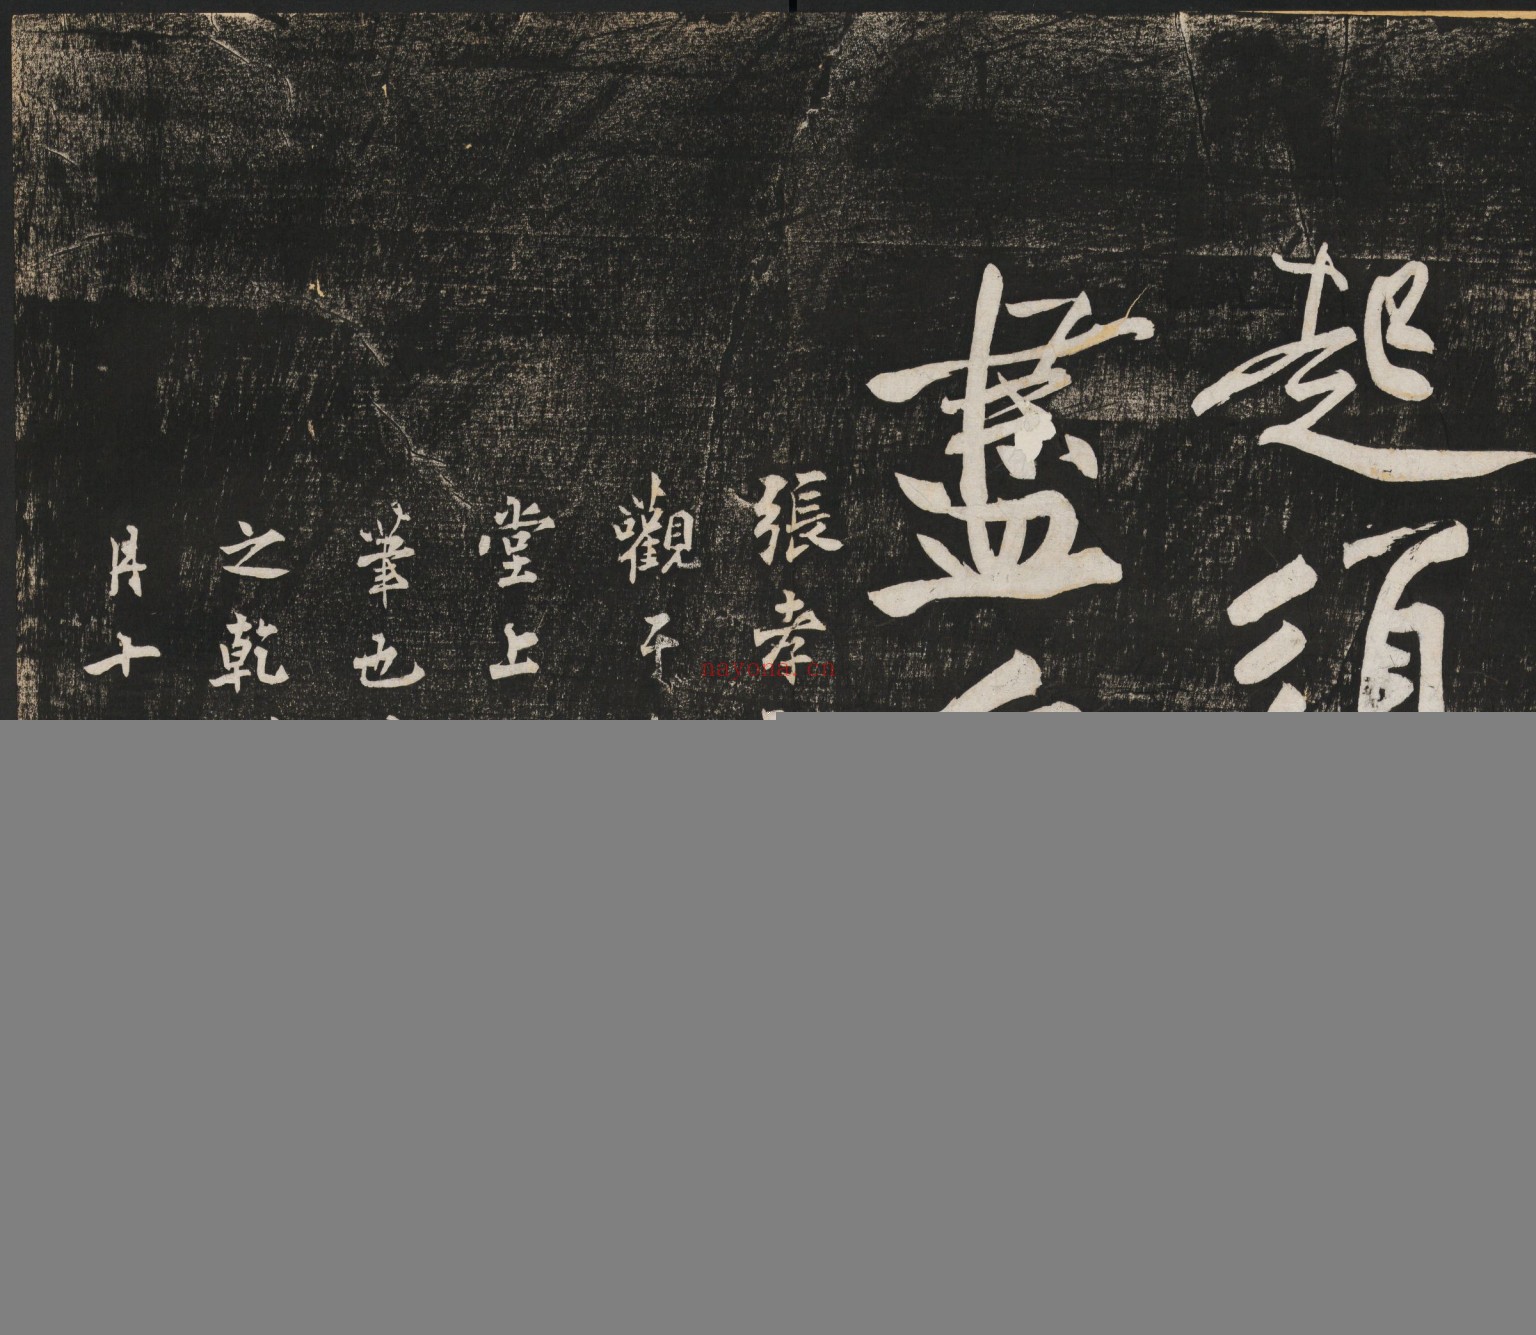 起須
盡
張孝
觀于
堂上
筆也
之乾
月十
nayona.cn